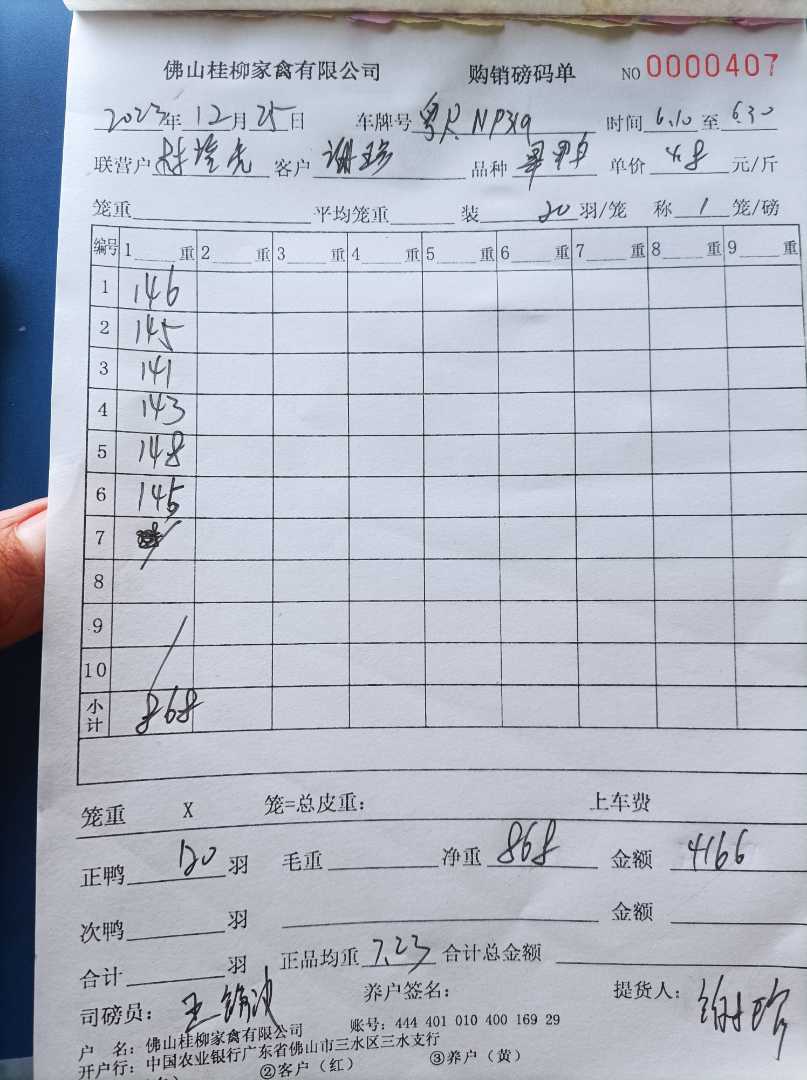 佛山桂柳家禽有限公司 购销磅码单 NO 0000407
2023年 12月 25日 车牌号 粤R NP319 时间 6.10 至 6.30
联营户 客户 谢 品种 单价 4.8 元/斤
笼重 平均笼重 装 20 羽/笼 称 1 笼/磅
编号 1 重 2 重 3 重 4 重 5 重 6 重 7 重 8 重 9 重
1 146
2 145
3 141
4 143
5 148
6 145
7
8
9
10
小计 868
笼重 X 笼=总皮重: 上车费
正鸭 120 羽 毛重 净重 868 金额 4166
次鸭 羽 金额
合计 羽 正品均重 7.23 合计总金额
司磅员: 王 养户签名: 提货人: 谢
户 名: 佛山桂柳家禽有限公司 账号: 444 401 010 400 169 29
开户行: 中国农业银行广东省佛山市三水区三水支行
②客户(红) ③养户(黄)